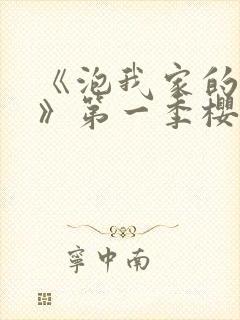 《泡我家的
》第一季樱
宁中南